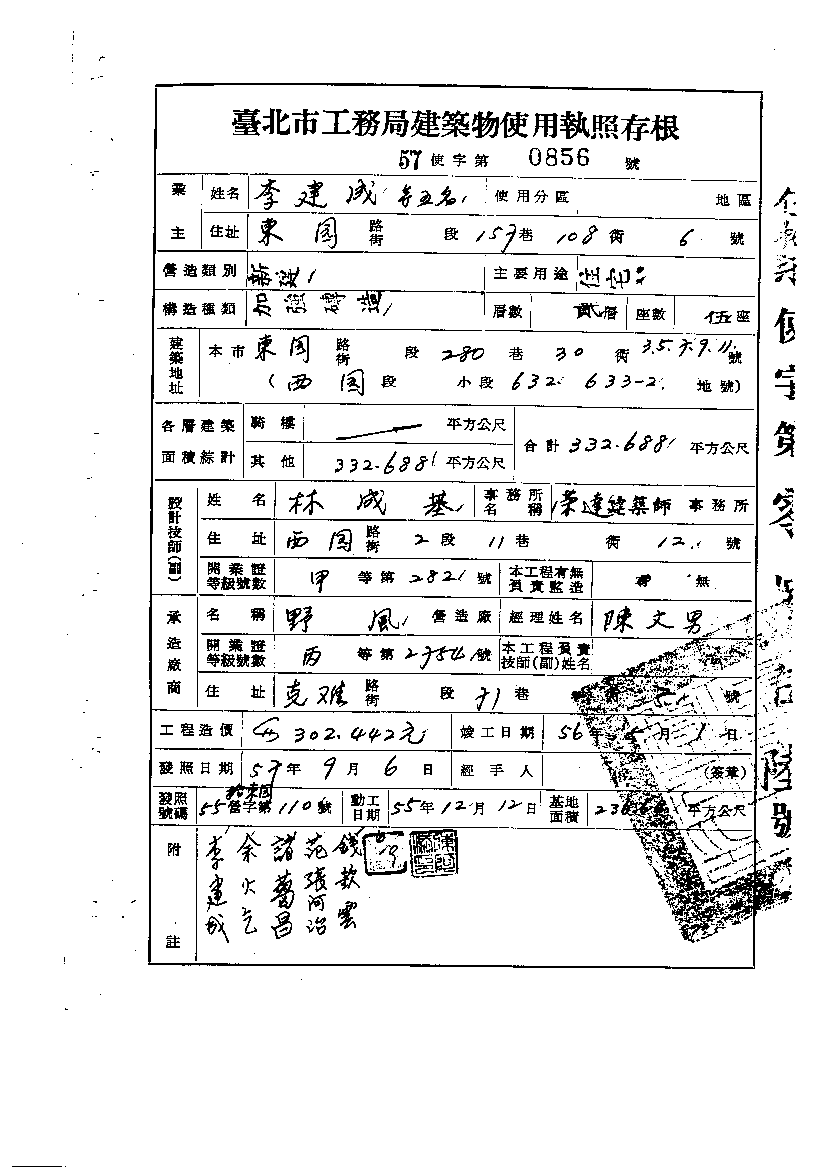 臺北市工務局建築物使用執照存根
57使字第 0856 號
業主 姓名 李建成等五名 使用分區 地區
住址 東園 路街 段 157巷 108衖 6 號
營造類別 新建 主要用途 住宅
構造種類 加強磚造 層數 貳層 座數 伍座
建築地址 本市 東園 路街 段 280 巷 30 衖 3.5.7.9.11.號
(西園段 小段 632. 633-2. 地號)
各層建築面積綜計 騎樓 平方公尺 合計 332.6881 平方公尺
其他 332.6881 平方公尺
設計技師(副) 姓名 林成基 事務所名稱 榮達建築師 事務所
住址 西園 路街 2段 11巷 衖 12. 號
開業證等級號數 甲 等第 2821 號 本工程有無負責監造 無
承造廠商 名稱 野風 營造廠 經理姓名 陳文男
開業證等級號數 丙 等第 號 本工程負責技師(副)姓名
住址 克難 路街 段 71巷 號
工程造價 302.442元 竣工日期 56年 月 1日
發照日期 57年9月6日 經手人 (簽章)
發照號碼 55營字第110號 動工日期 55年12月12日 基地面積 平方公尺
附註
李建成
余火
諸葛昌
范張阿治
錢欽雲
使字第零
陸號